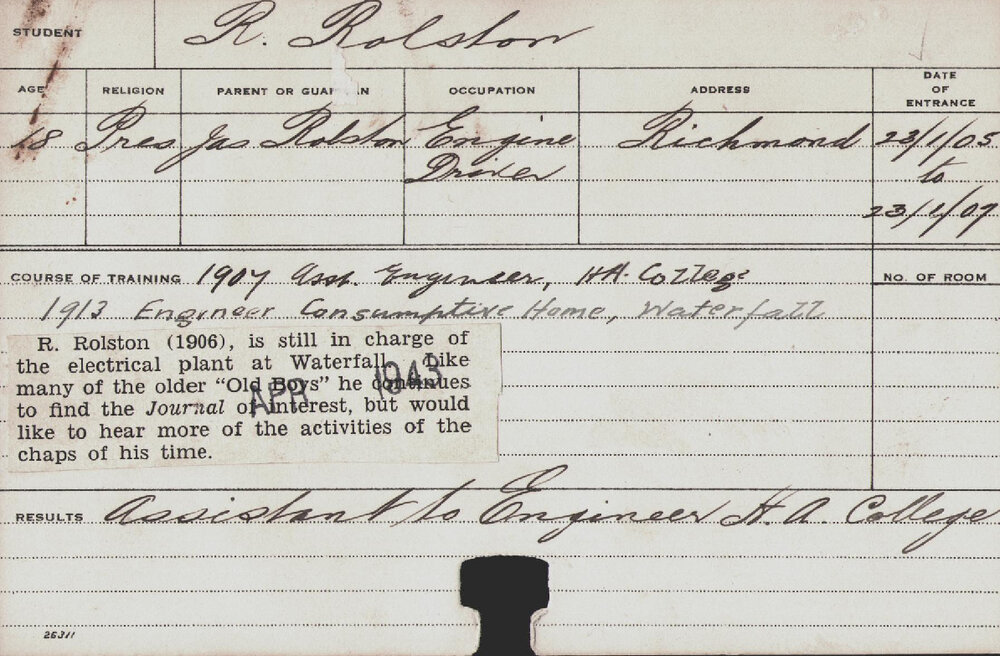 STUDENT R. Rolston
AGE RELIGION PARENT OR GUARDIAN OCCUPATION ADDRESS DATE OF ENTRANCE
18 Pres Jas Rolston Engine Driver Richmond 23/1/05 to 23/1/07
COURSE OF TRAINING 1907 Asst. Engineer, H.A. College
NO. OF ROOM
1913 Engineer Consumptive Home, Waterfall
R. Rolston (1906), is still in charge of
the electrical plant at Waterfall. Like
many of the older "Old Boys" he continues
to find the Journal of interest, but would
like to hear more of the activities of the
chaps of his time.
APR 1943
RESULTS Assistant to Engineer H. A. College
26311